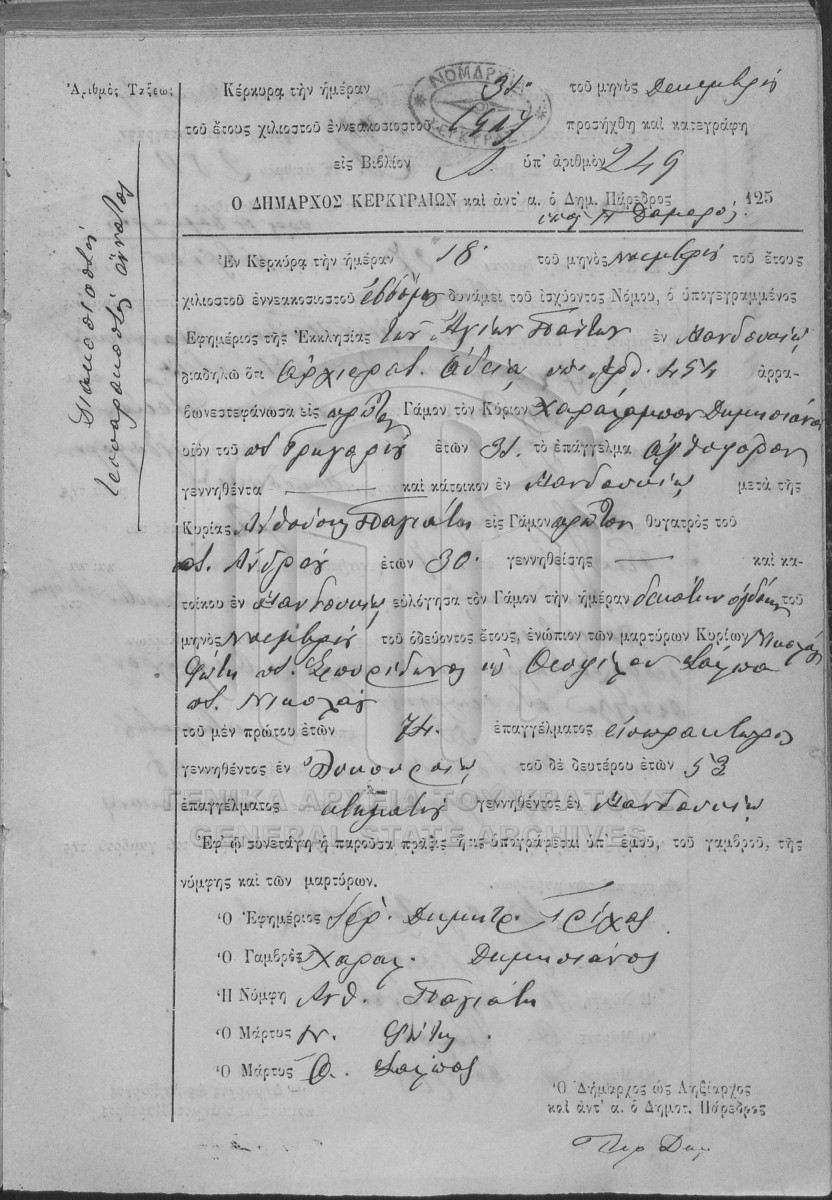 Ἀριθμὸς Τάξεως
διακόσιοι
τεσσαράκοντα ἐννέα
ΝΟΜΑΡΧΙΑ ΚΕΡΚΥΡΑΣ
Κέρκυρα τὴν ἡμέραν 31 τοῦ μηνὸς Δεκεμβρίου
τοῦ ἔτους χιλιοστοῦ ἐννεακοσιοστοῦ 1907 προσήχθη καὶ κατεγράφη
εἰς Βιβλίον Α ὑπ' ἀριθμὸν 249
Ο ΔΗΜΑΡΧΟΣ ΚΕΡΚΥΡΑΙΩΝ καὶ ἀντ' α. ὁ Δημ. Πάρεδρος 125
Ἐν Κερκύρᾳ τὴν ἡμέραν 18 τοῦ μηνὸς Νοεμβρίου τοῦ ἔτους
χιλιοστοῦ ἐννεακοσιοστοῦ ἑβδόμου δυνάμει τοῦ ἰσχύοντος Νόμου, ὁ ὑπογεγραμμένος
Ἐφημέριος τῆς Ἐκκλησίας τῶν Ἁγίων Πάντων ἐν Μανδουκίῳ
διαδηλῶ ὅτι Ἀρχιερατ. ἀδείᾳ ὑπ' ἀρθ. 454 ἀρρα-
βωνεστεφάνωσα εἰς πρῶτον Γάμον τὸν Κύριον Χαράλαμπον
υἱὸν τοῦ ποτ. Γρηγορίου ἐτῶν 31 τὸ ἐπάγγελμα ἀχθοφόρον
γεννηθέντα — καὶ κάτοικον ἐν Μανδουκίῳ μετὰ τῆς
Κυρίας Ἀνθούσης Παγιάτη εἰς Γάμον πρῶτον θυγατρὸς τοῦ
ποτ. Ἀνδρέου ἐτῶν 30 γεννηθείσης — καὶ κα-
τοίκου ἐν Μανδουκίῳ εὐλόγησα τὸν Γάμον τὴν ἡμέραν δεκάτην ὀγδόην τοῦ
μηνὸς Νοεμβρίου τοῦ ὁδεύοντος ἔτους, ἐνώπιον τῶν μαρτύρων Κυρίων Νικολάου
Φώτη ποτ. Σπυρίδωνος καὶ Θεοφίλου Σάλπα
ποτ. Νικολάου
τοῦ μὲν πρώτου ἐτῶν 74 ἐπαγγέλματος εἰσπράκτορος
γεννηθέντος ἐν τοῦ δὲ δευτέρου ἐτῶν 53
ἐπαγγέλματος κτηματίου γεννηθέντος ἐν Μανδουκίῳ
ΓΕΝΙΚΑ ΑΡΧΕΙΑ ΤΟΥ ΚΡΑΤΟΥΣ
GENERAL STATE ARCHIVES
Ἐφ' ᾧ συνετάγη ἡ παροῦσα πρᾶξις ἥτις ὑπογράφεται ὑπ' ἐμοῦ, τοῦ γαμβροῦ, τῆς
νύμφης καὶ τῶν μαρτύρων.
Ὁ Ἐφημέριος Ἱερ. Δημητρ. Τρίχας
Ὁ Γαμβρὸς Χαραλ.
Ἡ Νύμφη Ἀνθ. Παγιάτη
Ὁ Μάρτυς Ν. Φώτης
Ὁ Μάρτυς Θ. Σάλπας
Ὁ Δήμαρχος ὡς Ληξίαρχος
καὶ ἀντ' α. ὁ Δημοτ. Πάρεδρος